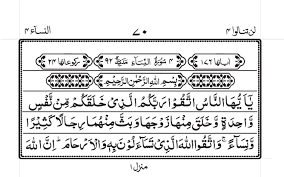 لن تنالوا ۴ ۷۰ النسآء ۴
اٰیاتها ۱۷۶ ۴ سُوْرَةُ النِّسَآءِ مَدَنِيَّةٌ ۹۲ رکوعاتها ۲۴
بِسْمِ اللهِ الرَّحْمٰنِ الرَّحِيْمِ
يٰۤاَيُّهَا النَّاسُ اتَّقُوْا رَبَّكُمُ الَّذِيْ خَلَقَكُمْ مِّنْ نَّفْسٍ
وَّاحِدَةٍ وَّخَلَقَ مِنْهَا زَوْجَهَا وَبَثَّ مِنْهُمَا رِجَالًا كَثِيْرًا
وَّنِسَآءً ۚ وَاتَّقُوا اللهَ الَّذِيْ تَسَآءَلُوْنَ بِهٖ وَالْاَرْحَامَ ؕ اِنَّ اللهَ
منزل ۱